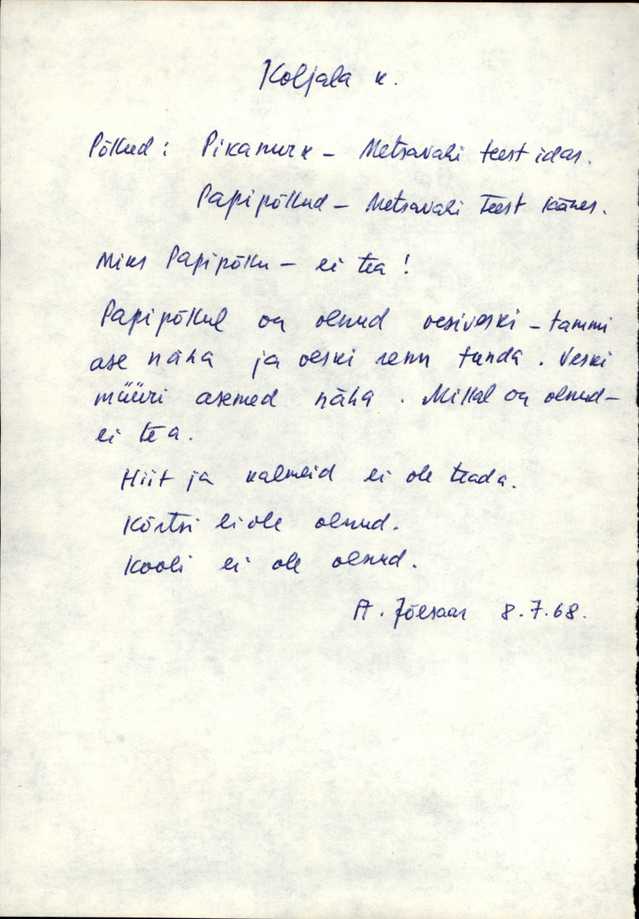 Koljala k.
Põlkud: Pikanurk - Metsavahi teest idas.
Papipõlkud - Metsavahi teest läänes.
Miks Papipõlku - ei tea!
Papipõlkul on olnud vesiveski - tammi
ase näha ja veski renn tunda. Veski
müüri asemed näha. Millal on olnud -
ei tea.
Hiit ja kalmeid ei ole teada.
Kõrtsi ei ole olnud.
Kooli ei ole olnud.
A. Jõesaar 8.7.68.